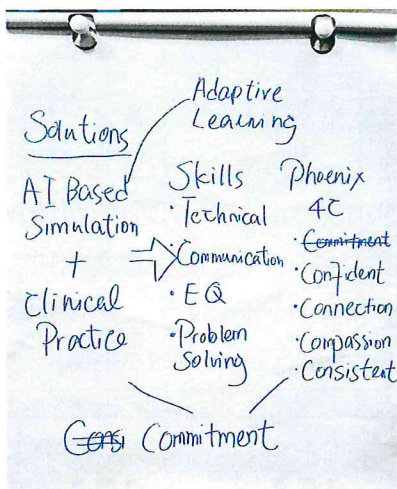 Adaptive
Learning
Solutions
AI Based
Simulation
+
Clinical
Practice
Skills
· Technical
· Communication
· EQ
· Problem
Solving
Phoenix
4C
· Commitment
· Confident
· Connection
· Compassion
· Consistent
Consi Commitment